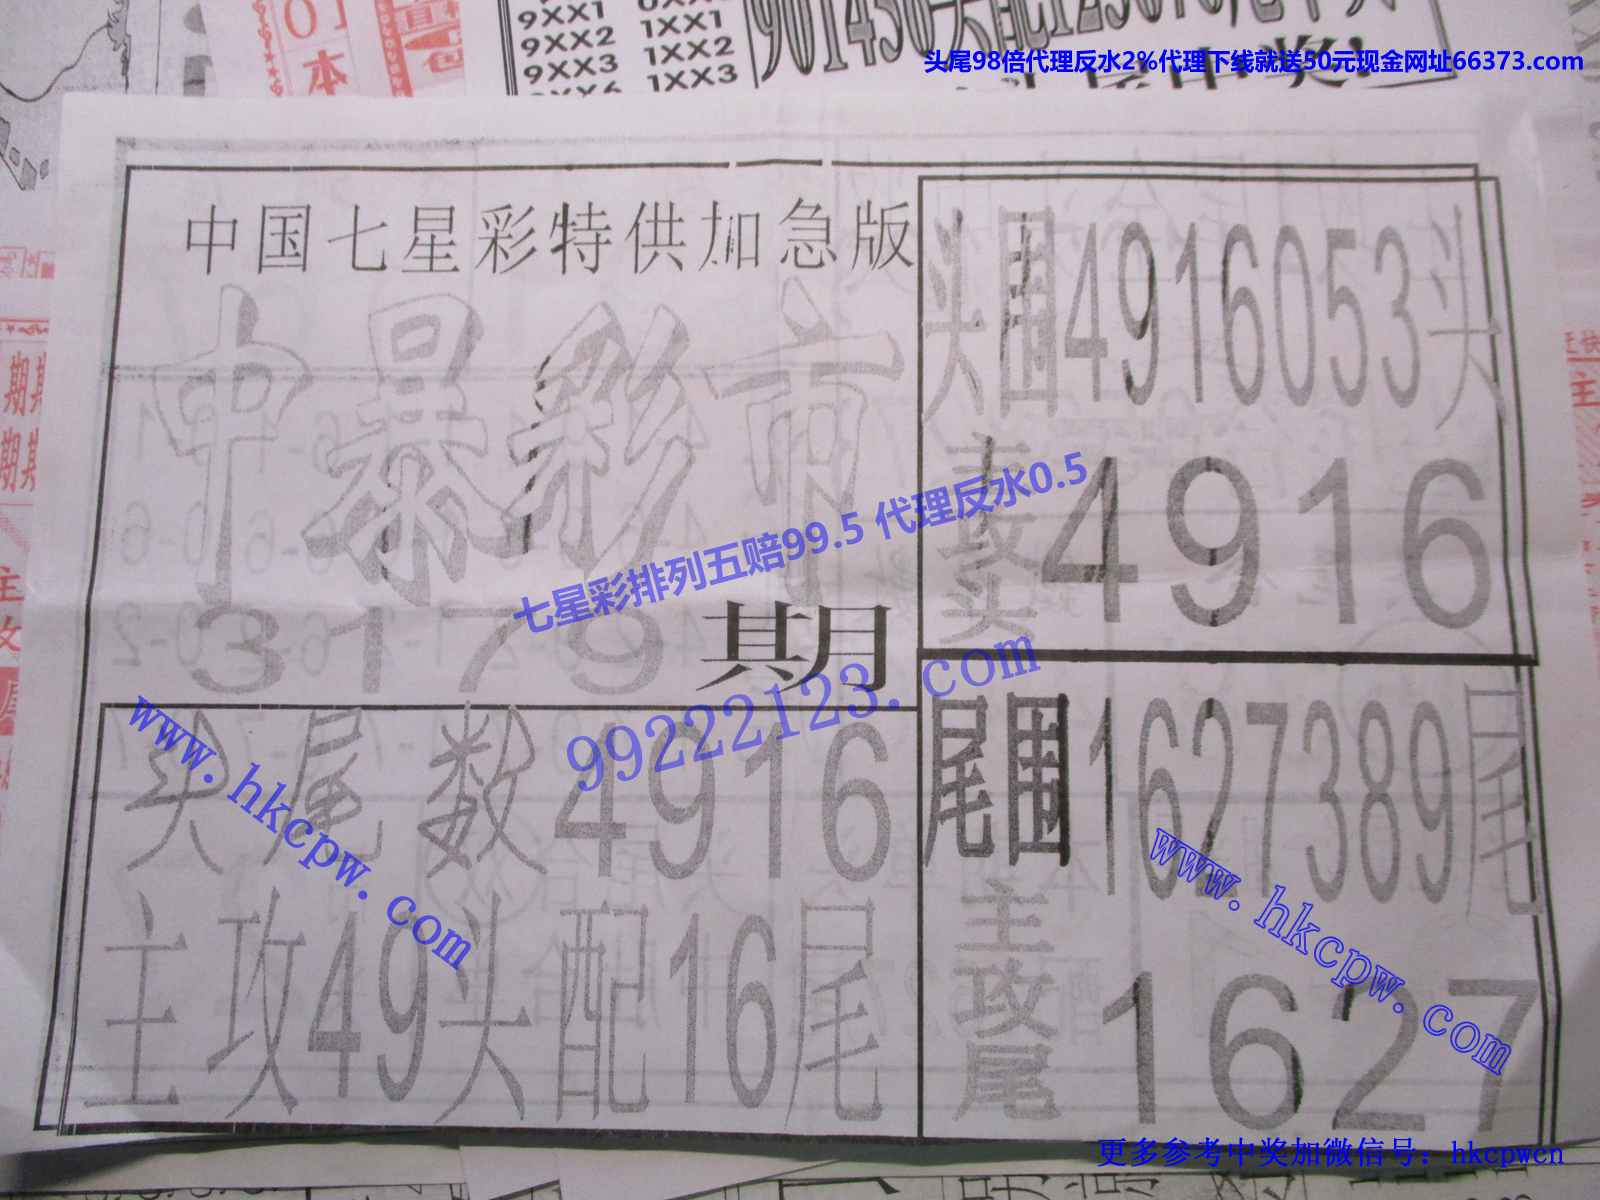 9XX1
9XX2 1XX1
9XX3 1XX2
1XX3
头尾98倍代理反水2%代理下线就送50元现金网址66373.com
本
期
期
主
攻
主
中国七星彩特供加急版
中暴彩市
3179期
头围4916053头
主攻头4916
七星彩排列五赔99.5 代理反水0.5
99222123.com
头尾数4916
主攻49头配16尾
www.hkcpw.com
尾围1627389尾
主攻尾1627
www.hkcpw.com
更多参考中奖加微信号：hkcpwcn